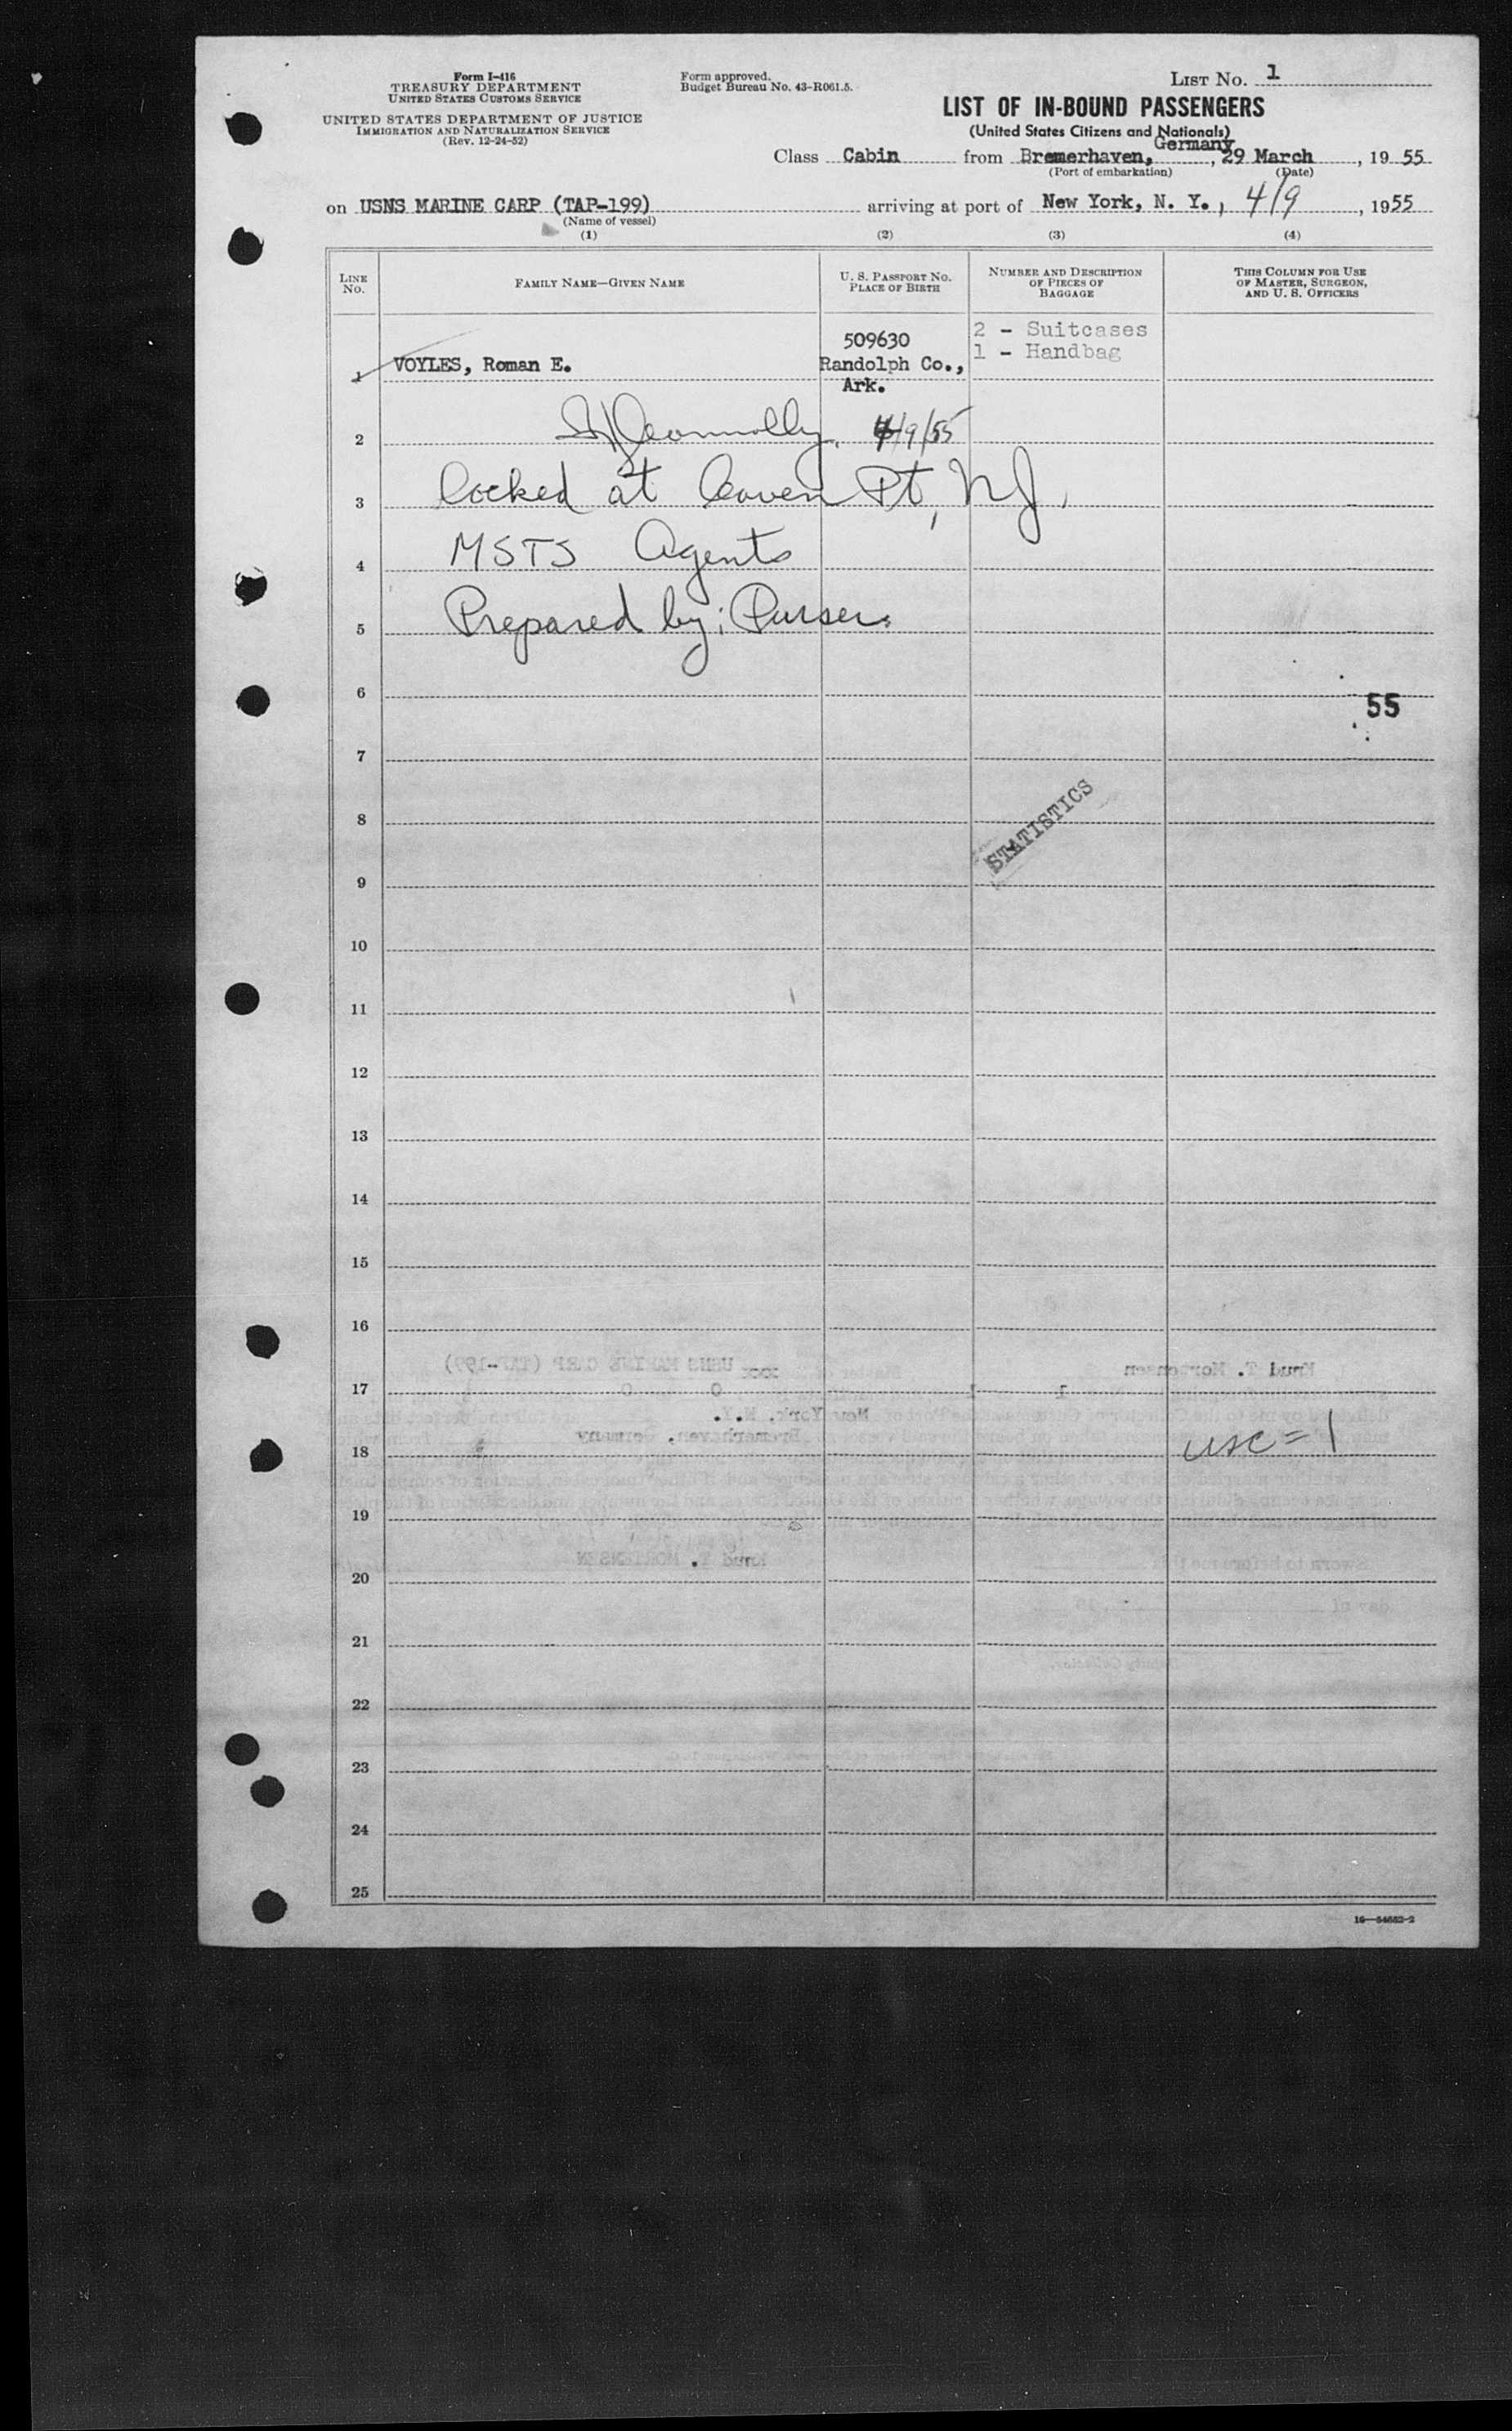 Form I-416
TREASURY DEPARTMENT
UNITED STATES CUSTOMS SERVICE
UNITED STATES DEPARTMENT OF JUSTICE
IMMIGRATION AND NATURALIZATION SERVICE
(Rev. 12-24-52)
Form approved.
Budget Bureau No. 43-R061.5.
LIST No. 1
LIST OF IN-BOUND PASSENGERS
(United States Citizens and Nationals)
Class Cabin from Bremerhaven, Germany, 29 March, 19 55
(Port of embarkation) (Date)
on USNS MARINE CARP (TAP-199) arriving at port of New York, N. Y., 4/9, 1955
(Name of vessel)
(1) (2) (3) (4)
LINE No. FAMILY NAME—GIVEN NAME U. S. PASSPORT NO. PLACE OF BIRTH NUMBER AND DESCRIPTION OF PIECES OF BAGGAGE THIS COLUMN FOR USE OF MASTER, SURGEON, AND U. S. OFFICERS
509630 2 - Suitcases
1 VOYLES, Roman E. Randolph Co., 1 - Handbag
Ark.
2 Connolly 4/9/55
3 at Caven Pt, NJ.
4 MSTS Agents
5 Prepared by: Purser.
6
55
7
8 STATISTICS
9
10
11
12
13
14
15
16
USNS MARINE CARP (TAP-199) Knud T. Mortensen
17
New York, N.Y.
Bremerhaven, Germany
18 USC = 1
19
Knud T. MORTENSEN
20
21
22
23
24
25